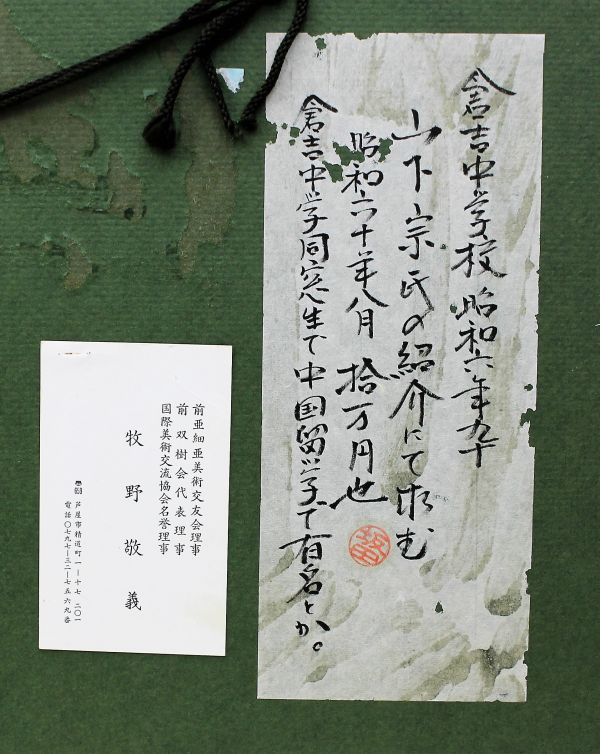 倉吉中学校 昭和六年卆
山下宗氏の紹介にて求む
昭和六十年八月 拾万円也
倉吉中学同窓生で中国留学で有名とか。
前亜細亜美術交友会理事
前双樹会代表理事
国際美術交流協会名誉理事
牧野敬義
芦屋市精道町一ー十七 二〇一
電話〇七九七ー三二ー七五六九番